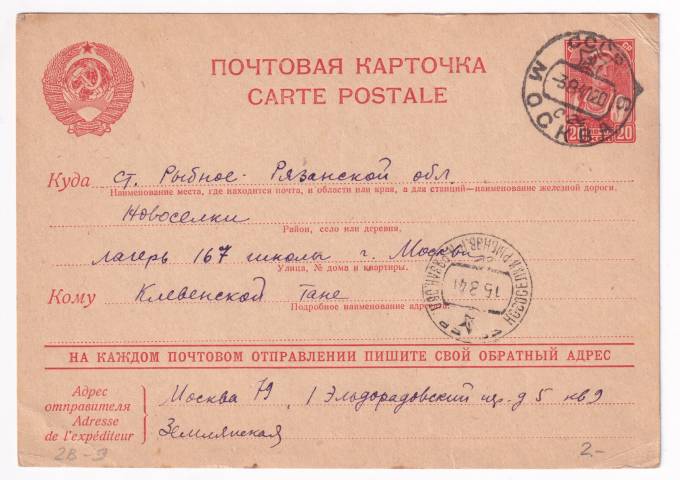 ПОЧТОВАЯ КАРТОЧКА
CARTE POSTALE
СССР
МОСКВА
20 20
Куда ст. Рыбное Рязанской обл.
Наименование места, где находится почта, и области или края, а для станций—наименование железной дороги.
Новоселки
Район, село или деревня.
лагерь 167 школы г. Москвы
Улица, № дома и квартиры.
Кому Клевенской Тане
Подробное наименование адресата.
НА КАЖДОМ ПОЧТОВОМ ОТПРАВЛЕНИИ ПИШИТЕ СВОЙ ОБРАТНЫЙ АДРЕС
Адрес
отправителя
Adresse
de l'expéditeur
Москва 79, 1 Эльдорадовский пр. д 5 кв 9
Землянская
2-